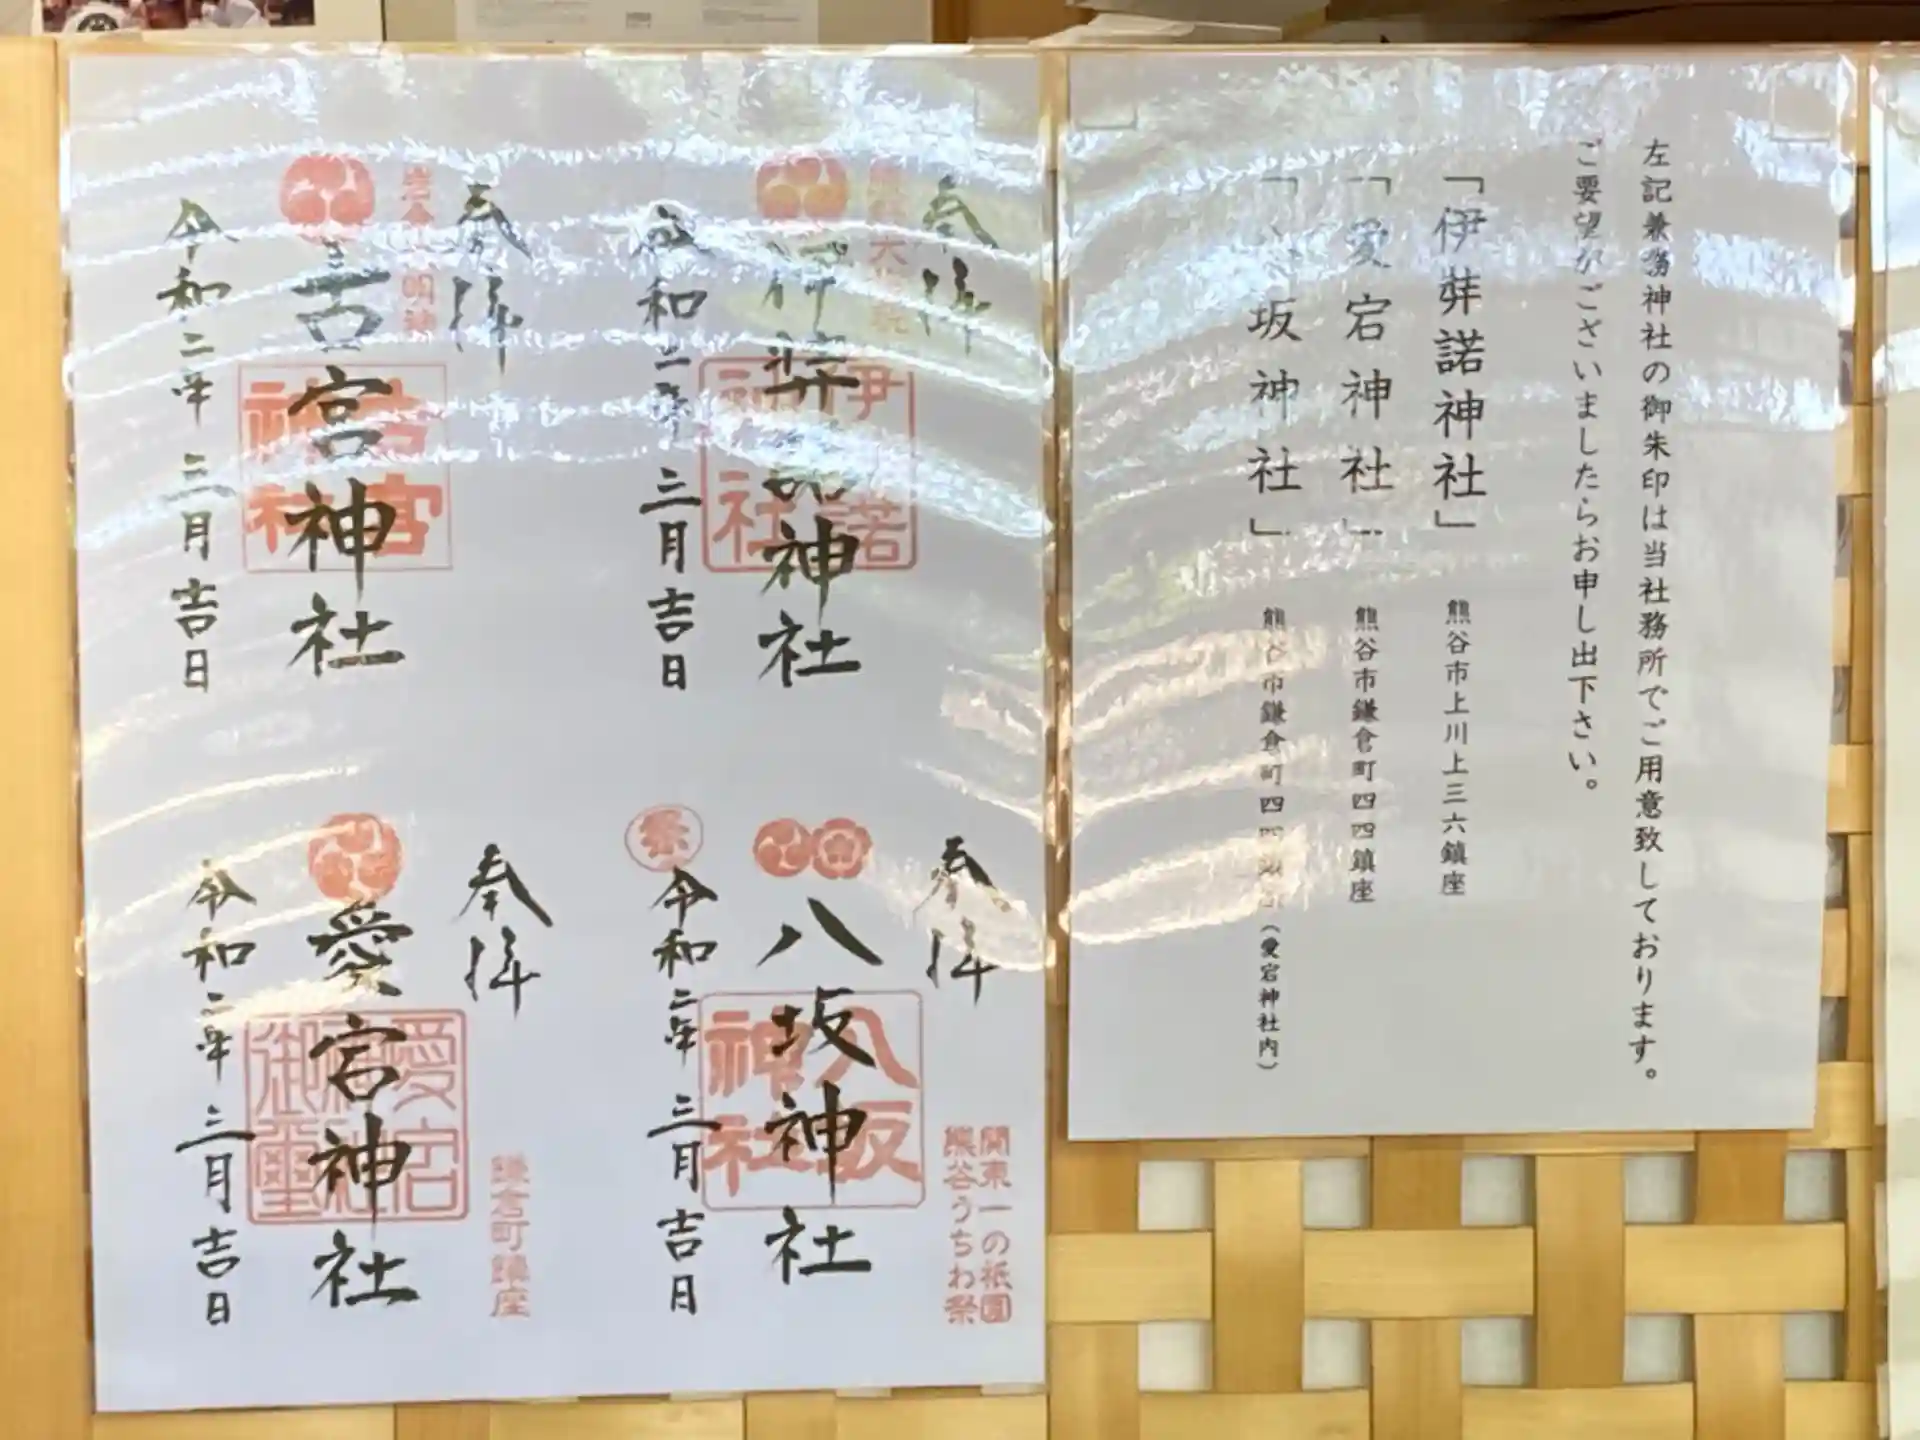 左記兼務神社の御朱印は当社務所でご用意致しております。
ご要望がございましたらお申し出下さい。
「伊弉諾神社」 熊谷市上川上三六鎮座
「愛宕神社」 熊谷市鎌倉町四四鎮座
坂神社」 熊谷市鎌倉町四四 (愛宕神社内)
奉拝
弉諾神社
伊弉諾神社
令和二年三月吉日
奉拝
古宮神社
古宮神社
令和二年三月吉日
奉拝
八坂神社
八坂神社
関東一の祇園
熊谷うちわ祭
祭
令和二年三月吉日
奉拝
愛宕神社
愛宕神社御璽
鎌倉町鎮座
令和二年三月吉日